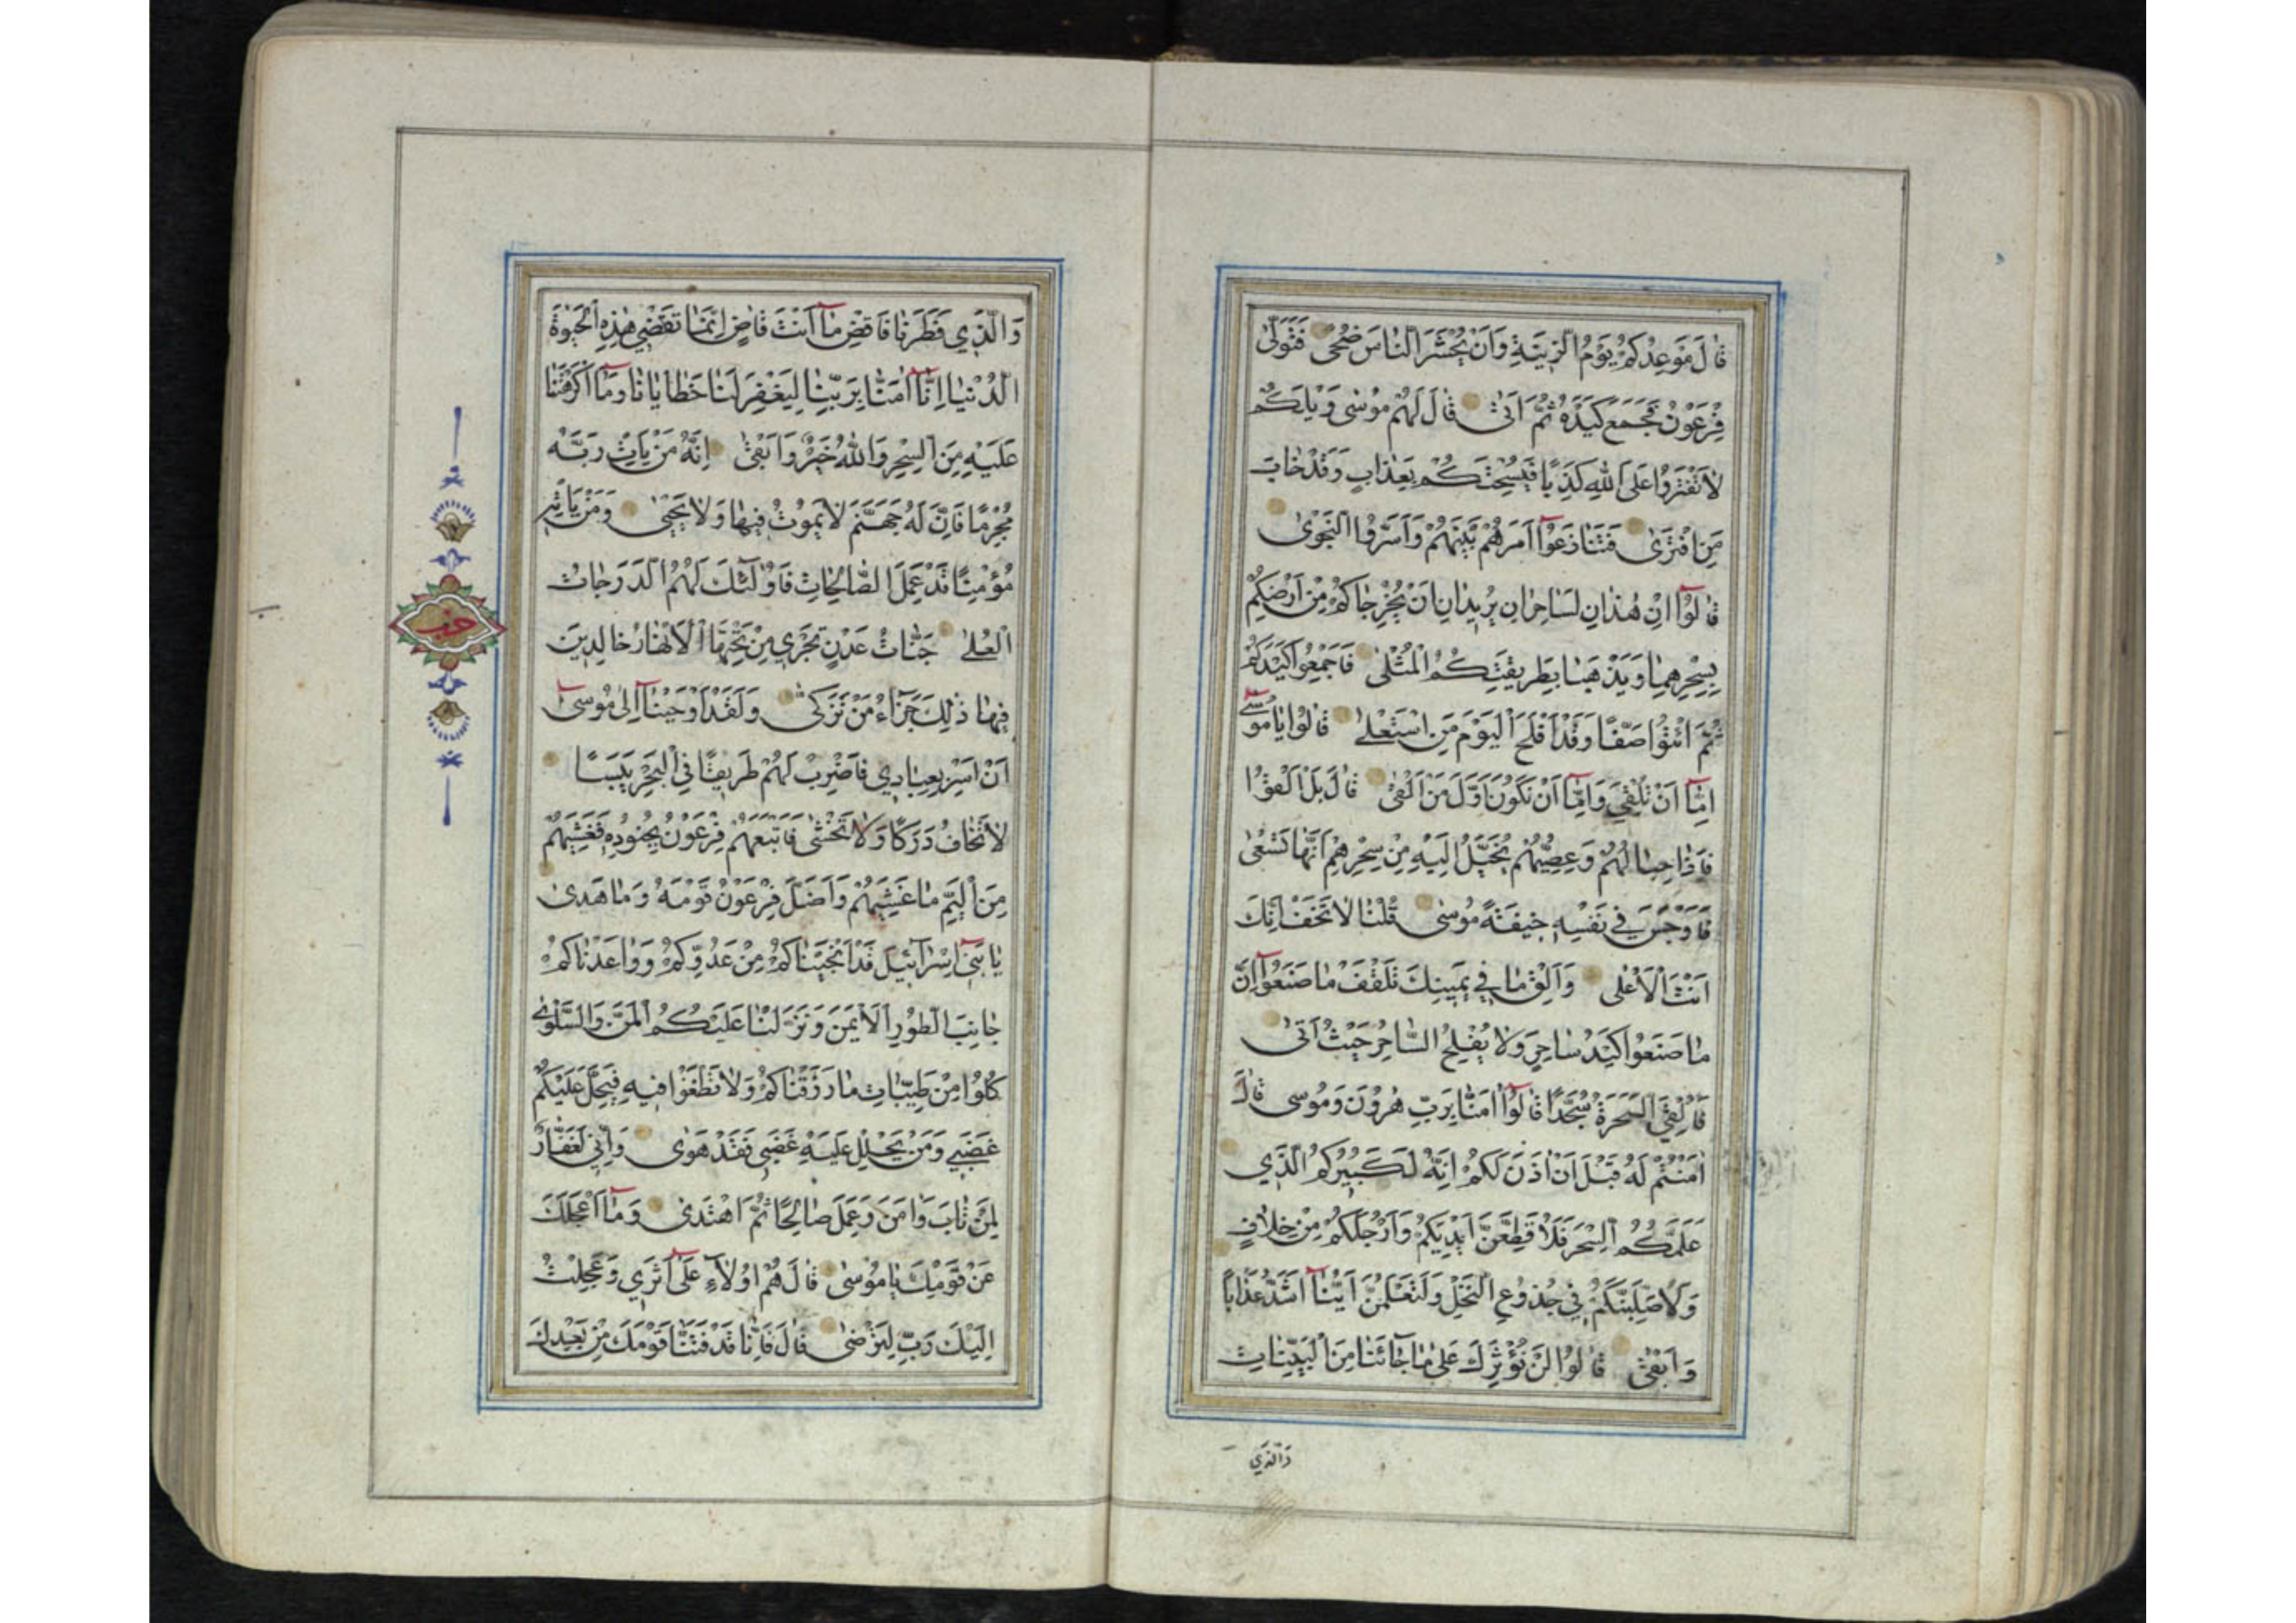 قَالَ مَوْعِدُكُمْ يَوْمُ الزِّينَةِ وَاَنْ يُحْشَرَ النَّاسُ ضُحًى فَتَوَلّٰى
فِرْعَوْنُ فَجَمَعَ كَيْدَهُ ثُمَّ اَتٰى قَالَ لَهُمْ مُوسٰى وَيْلَكُمْ
لَا تَفْتَرُوا عَلَى اللّٰهِ كَذِبًا فَيُسْحِتَكُمْ بِعَذَابٍ وَقَدْ خَابَ
مَنِ افْتَرٰى فَتَنَازَعُوٓا اَمْرَهُمْ بَيْنَهُمْ وَاَسَرُّوا النَّجْوٰى
قَالُوٓا اِنْ هٰذَانِ لَسَاحِرَانِ يُرِيدَانِ اَنْ يُخْرِجَاكُمْ مِنْ اَرْضِكُمْ
بِسِحْرِهِمَا وَيَذْهَبَا بِطَرِيقَتِكُمُ الْمُثْلٰى فَاَجْمِعُوا كَيْدَكُمْ
ثُمَّ ائْتُوا صَفًّا وَقَدْ اَفْلَحَ الْيَوْمَ مَنِ اسْتَعْلٰى قَالُوا يَا مُوسٰٓى
اِمَّآ اَنْ تُلْقِيَ وَاِمَّآ اَنْ نَكُونَ اَوَّلَ مَنْ اَلْقٰى قَالَ بَلْ اَلْقُوا
فَاِذَا حِبَالُهُمْ وَعِصِيُّهُمْ يُخَيَّلُ اِلَيْهِ مِنْ سِحْرِهِمْ اَنَّهَا تَسْعٰى
فَاَوْجَسَ فِي نَفْسِهِ خِيفَةً مُوسٰى قُلْنَا لَا تَخَفْ اِنَّكَ
اَنْتَ الْاَعْلٰى وَاَلْقِ مَا فِي يَمِينِكَ تَلْقَفْ مَا صَنَعُوٓا اِنَّ
مَا صَنَعُوا كَيْدُ سَاحِرٍ وَلَا يُفْلِحُ السَّاحِرُ حَيْثُ اَتٰى
فَاُلْقِيَ السَّحَرَةُ سُجَّدًا قَالُوٓا اٰمَنَّا بِرَبِّ هٰرُونَ وَمُوسٰى قَالَ
اٰمَنْتُمْ لَهُ قَبْلَ اَنْ اٰذَنَ لَكُمْ اِنَّهُ لَكَبِيرُكُمُ الَّذِي
عَلَّمَكُمُ السِّحْرَ فَلَاُقَطِّعَنَّ اَيْدِيَكُمْ وَاَرْجُلَكُمْ مِنْ خِلَافٍ
وَلَاُصَلِّبَنَّكُمْ فِي جُذُوعِ النَّخْلِ وَلَتَعْلَمُنَّ اَيُّنَآ اَشَدُّ عَذَابًا
وَاَبْقٰى قَالُوا لَنْ نُؤْثِرَكَ عَلٰى مَا جَائَنَا مِنَ الْبَيِّنَاتِ
وَالَّذِي
وَالَّذِي فَطَرَنَا فَاقْضِ مَآ اَنْتَ قَاضٍ اِنَّمَا تَقْضِي هٰذِهِ الْحَيٰوةَ
الدُّنْيَا اِنَّآ اٰمَنَّا بِرَبِّنَا لِيَغْفِرَ لَنَا خَطَايَانَا وَمَآ اَكْرَهْتَنَا
عَلَيْهِ مِنَ السِّحْرِ وَاللّٰهُ خَيْرٌ وَاَبْقٰى اِنَّهُ مَنْ يَاْتِ رَبَّهُ
مُجْرِمًا فَاِنَّ لَهُ جَهَنَّمَ لَا يَمُوتُ فِيهَا وَلَا يَحْيٰى وَمَنْ يَاْتِهِ
مُؤْمِنًا قَدْ عَمِلَ الصَّالِحَاتِ فَاُولٰٓئِكَ لَهُمُ الدَّرَجَاتُ
الْعُلٰى جَنَّاتُ عَدْنٍ تَجْرِي مِنْ تَحْتِهَا الْاَنْهَارُ خَالِدِينَ
فِيهَا ذٰلِكَ جَزَآءُ مَنْ تَزَكّٰى وَلَقَدْ اَوْحَيْنَآ اِلٰى مُوسٰٓى
اَنْ اَسْرِ بِعِبَادِي فَاضْرِبْ لَهُمْ طَرِيقًا فِي الْبَحْرِ يَبَسًا
لَا تَخَافُ دَرَكًا وَلَا تَخْشٰى فَاَتْبَعَهُمْ فِرْعَوْنُ بِجُنُودِهِ فَغَشِيَهُمْ
مِنَ الْيَمِّ مَا غَشِيَهُمْ وَاَضَلَّ فِرْعَوْنُ قَوْمَهُ وَمَا هَدٰى
يَا بَنِيٓ اِسْرَآئِيلَ قَدْ اَنْجَيْنَاكُمْ مِنْ عَدُوِّكُمْ وَوَاعَدْنَاكُمْ
جَانِبَ الطُّورِ الْاَيْمَنَ وَنَزَّلْنَا عَلَيْكُمُ الْمَنَّ وَالسَّلْوٰى
كُلُوا مِنْ طَيِّبَاتِ مَا رَزَقْنَاكُمْ وَلَا تَطْغَوْا فِيهِ فَيَحِلَّ عَلَيْكُمْ
غَضَبِي وَمَنْ يَحْلِلْ عَلَيْهِ غَضَبِي فَقَدْ هَوٰى وَاِنِّي لَغَفَّارٌ
لِمَنْ تَابَ وَاٰمَنَ وَعَمِلَ صَالِحًا ثُمَّ اهْتَدٰى وَمَآ اَعْجَلَكَ
عَنْ قَوْمِكَ يَا مُوسٰى قَالَ هُمْ اُولَآءِ عَلٰٓى اَثَرِي وَعَجِلْتُ
اِلَيْكَ رَبِّ لِتَرْضٰى قَالَ فَاِنَّا قَدْ فَتَنَّا قَوْمَكَ مِنْ بَعْدِكَ
حزب